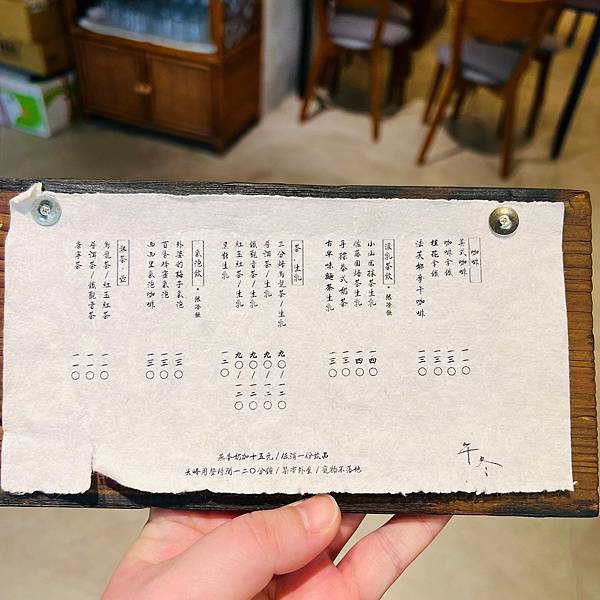 咖啡
美式咖啡 一一〇
咖啡拿鐵 一三〇
桂花拿鐵 一三〇
法芙娜摩卡咖啡 一三〇
濃乳茶飲・限冷飲
小山園抹茶生乳 一四〇
佐藤園焙茶生乳 一四〇
手標泰式奶茶 一三〇
古早味麵茶生乳 一三〇
茶・生乳
三分焙烏龍茶/生乳 九〇/一二〇
普洱茶/生乳 九〇/一二〇
鐵觀音茶/生乳 九〇/一二〇
紅玉紅茶/生乳 九〇/一二〇
生乳 一二〇
氣泡飲・限冷飲
外婆的梅子氣泡 一三〇
百香蜂蜜氣泡 一三〇
西西里氣泡咖啡 一三〇
熱茶・壺
烏龍茶/紅玉紅茶
普洱茶/鐵觀音茶 一一〇
唐寧茶 一一〇
燕麥奶加十五元/低消一份飲品
尖峰用餐時間一二〇分鐘/禁帶外食/寵物不落地
午冬